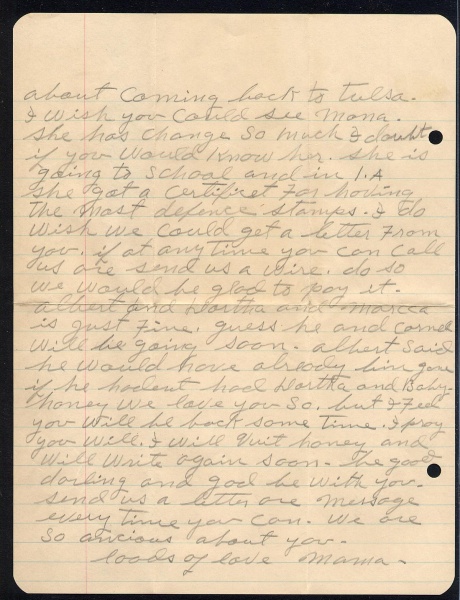 about Coming back to Tulsa.
I Wish you Could see Mona.
She has change so much I doubt
if you Would Know her. She is
going to School and in 1.A
She got a Certificet For hoving
the most defence stamps. I do
Wish We Could get a letter From
you. if at any time you con Call
us are send us a Wire. do so
We Would be glad to pay it.
albert and Hortha and Marcia
is Just Fine. guess he and Cornel
Will be going soon. albert Said
he Would have already bin gone
if he hadent had Hortha and Baby.
honey We love you So. but I Feel
you Will be back some time. I pray
you Will. I Will Quit honey and
Will Write again soon. be good
darling and god be With you.
send us a letter are message
every time you Can. We are
So ancious about you.
loads of love Mama.